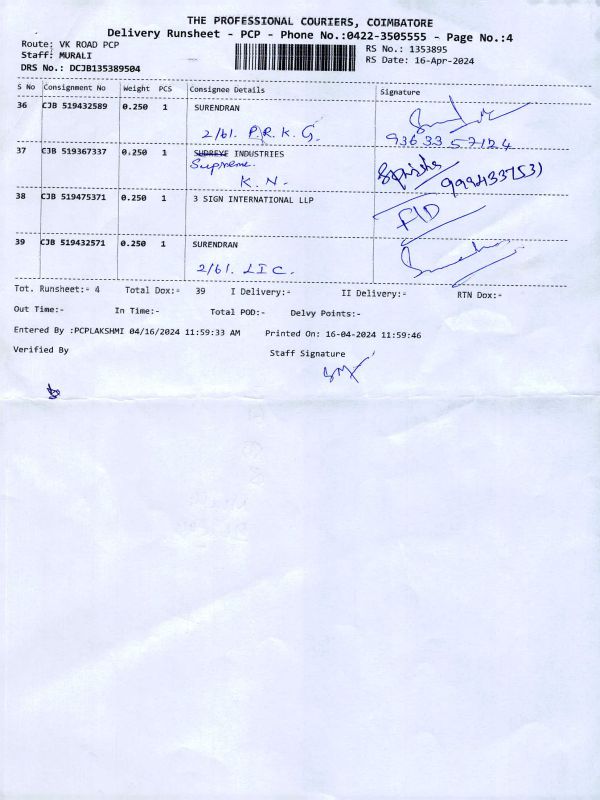 THE PROFESSIONAL COURIERS, COIMBATORE
Delivery Runsheet - PCP - Phone No.:0422-3505555 - Page No.:4
Route: VK ROAD PCP
Staff: MURALI
DRS No.: DCJB135389504
RS No.: 1353895
RS Date: 16-Apr-2024
S No Consignment No Weight PCS Consignee Details Signature
36 CJB 519432589 0.250 1 SURENDRAN
2/61. P.R.K.G.
93633 57124
37 CJB 519367337 0.250 1 INDUSTRIES
Supreme
K.N.
38 CJB 519475371 0.250 1 3 SIGN INTERNATIONAL LLP
39 CJB 519432571 0.250 1 SURENDRAN
2/61. LIC.
Tot. Runsheet:- 4 Total Dox:- 39 I Delivery:- II Delivery:- RTN Dox:-
Out Time:- In Time:- Total POD:- Delvy Points:-
Entered By :PCPLAKSHMI 04/16/2024 11:59:33 AM Printed On: 16-04-2024 11:59:46
Verified By Staff Signature